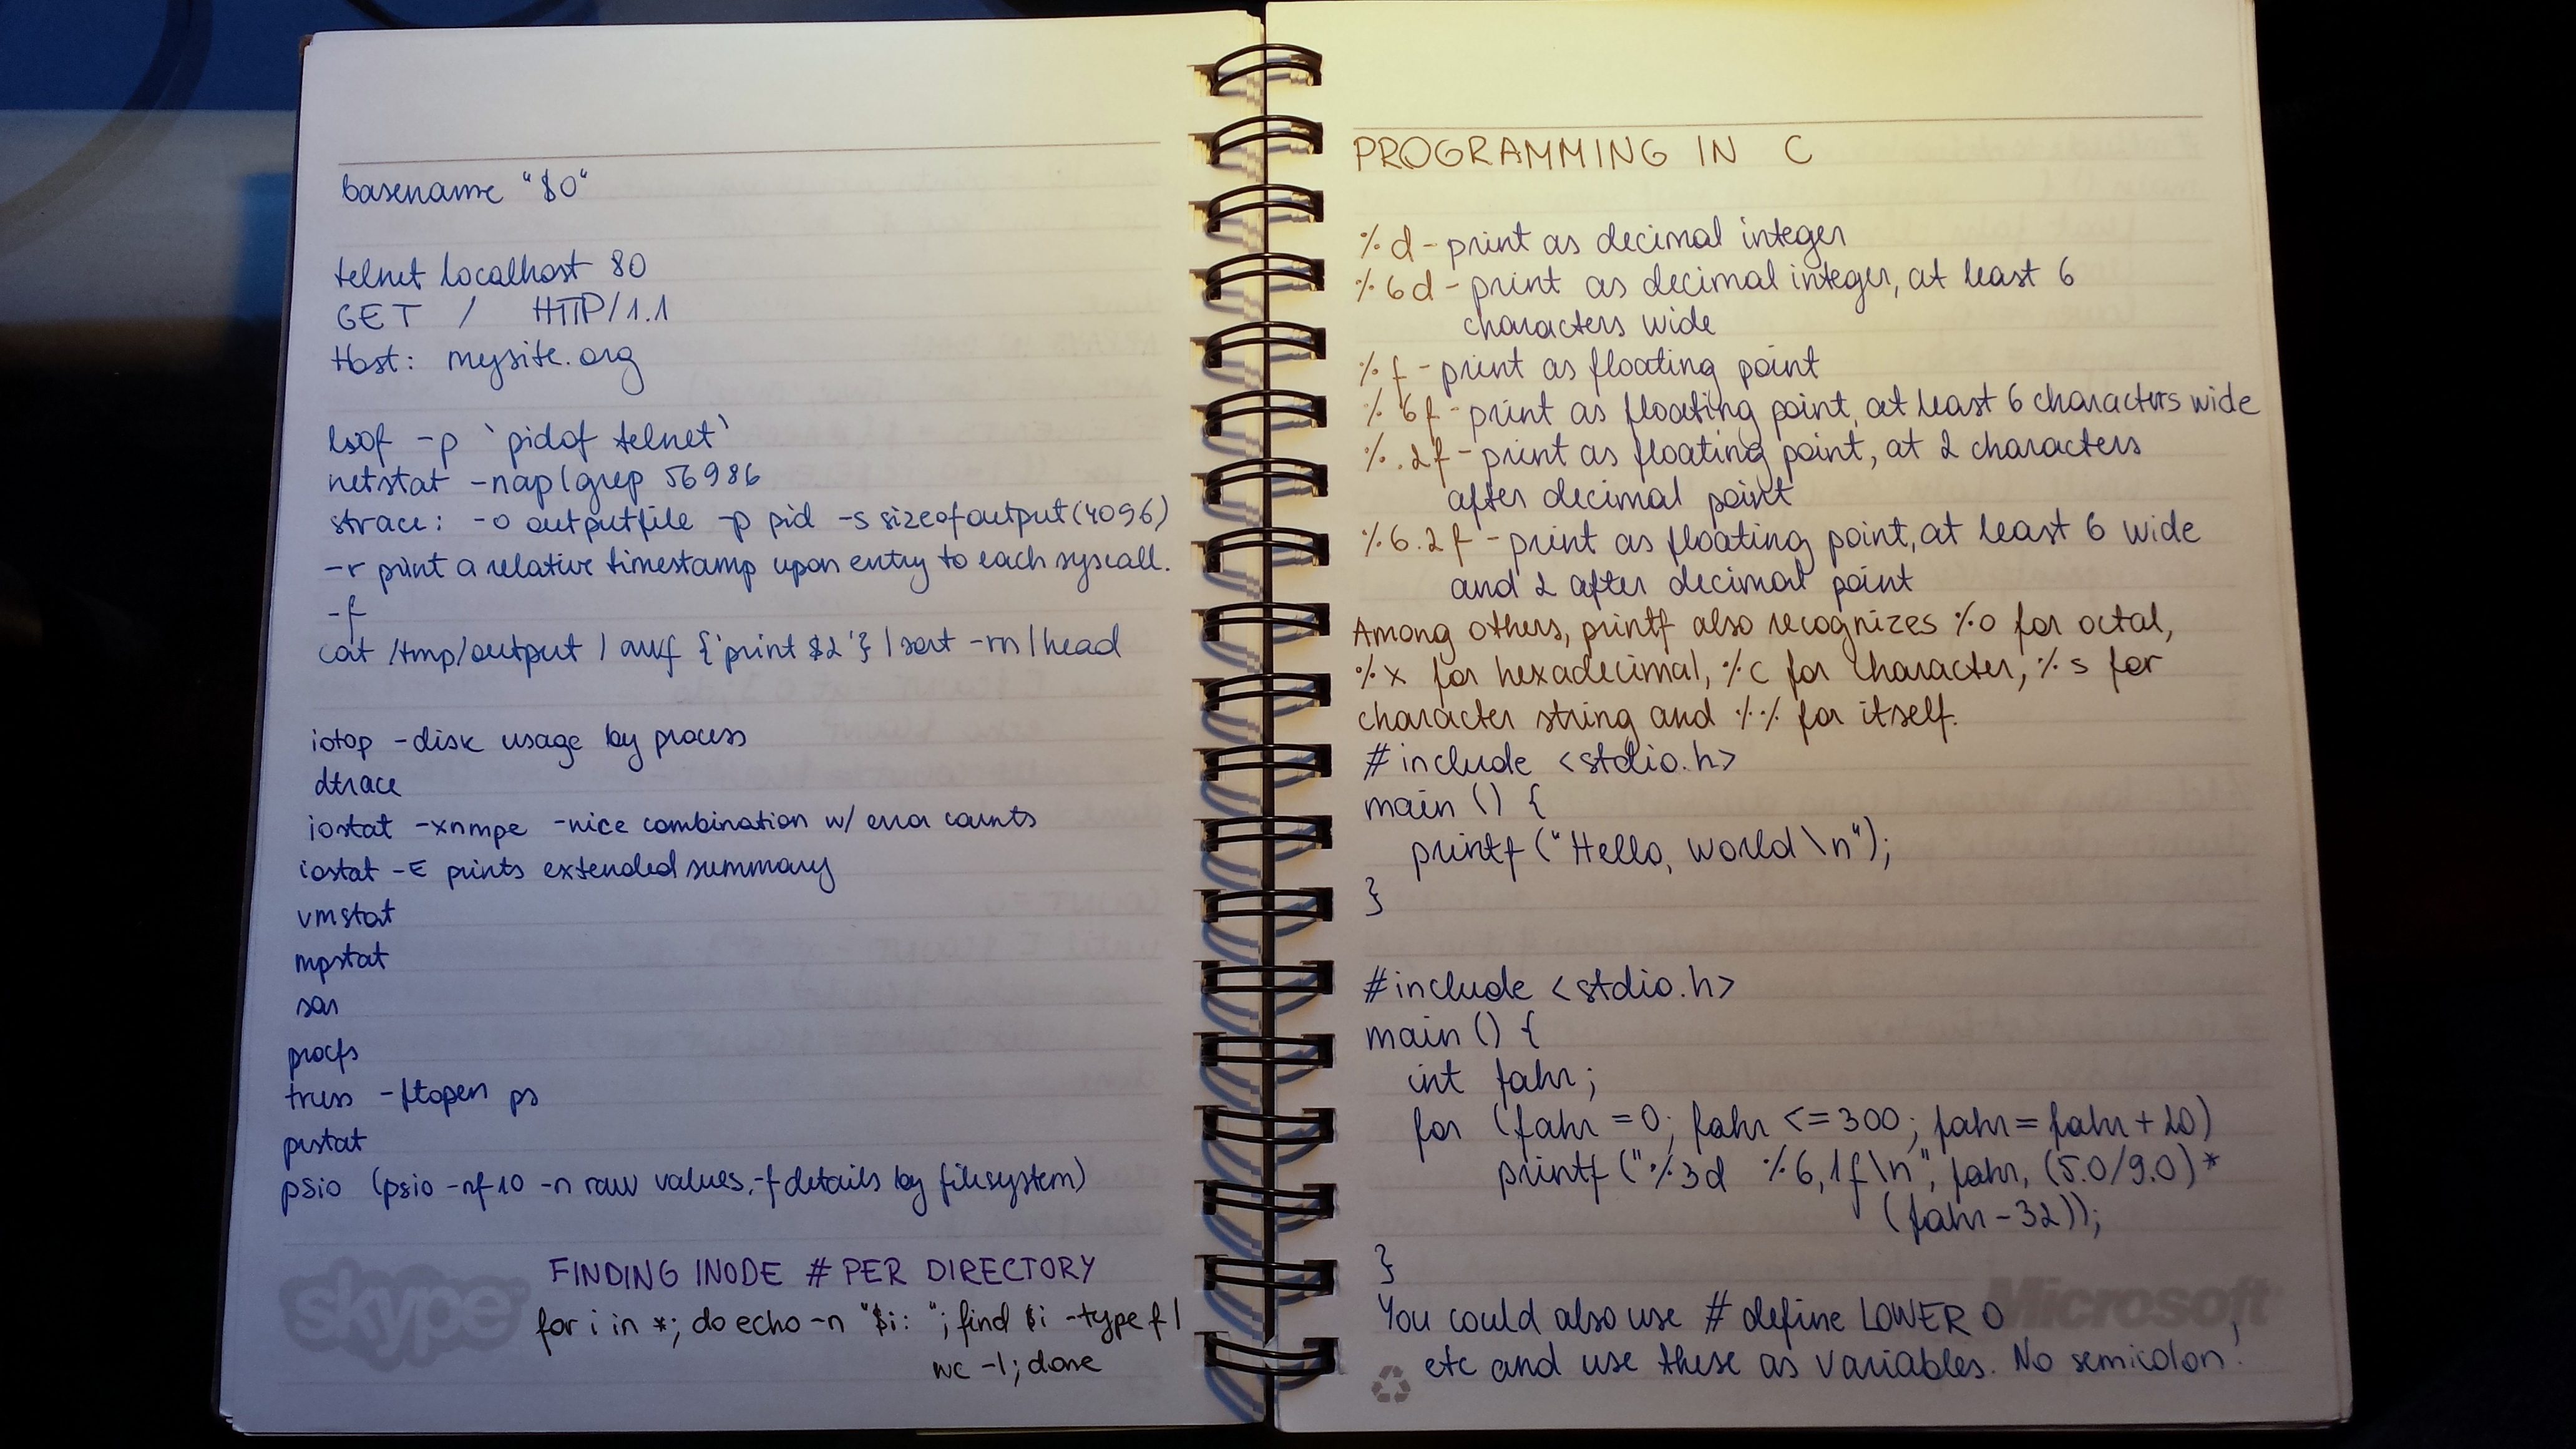 basename "$0"
telnet localhost 80
GET / HTTP/1.1
Host: mysite.org
lsof -p `pidof telnet`
netstat -nap|grep 56986
strace: -o outputfile -p pid -s sizeofoutput(4096)
-r print a relative timestamp upon entry to each syscall.
-f
cat /tmp/output | awk {'print $2'} | sort -rn | head
iotop -disk usage by process
dtrace
iostat -xnmpe -nice combination w/ error counts
iostat -E prints extended summary
vmstat
mpstat
sar
procfs
truss -ftopen ps
prstat
psio (psio -nf 10 -n raw values, -f details by filesystem)
FINDING INODE # PER DIRECTORY
for i in *; do echo -n "$i: "; find $i -type f |
wc -l; done
skype
PROGRAMMING IN C
%d - print as decimal integer
%6d - print as decimal integer, at least 6
characters wide
%f - print as floating point
%6f - print as floating point, at least 6 characters wide
%.2f - print as floating point, at 2 characters
after decimal point
%6.2f - print as floating point, at least 6 wide
and 2 after decimal point
Among others, printf also recognizes %o for octal,
%x for hexadecimal, %c for character, %s for
character string and %% for itself.
#include <stdio.h>
main () {
printf ("Hello, world\n");
}
#include <stdio.h>
main () {
int fahr;
for (fahr = 0; fahr <= 300; fahr = fahr + 20)
printf ("%3d %6,1f\n", fahr, (5.0/9.0)*
(fahr - 32));
}
You could also use # define LOWER 0
etc and use these as variables. No semicolon!
Microsoft